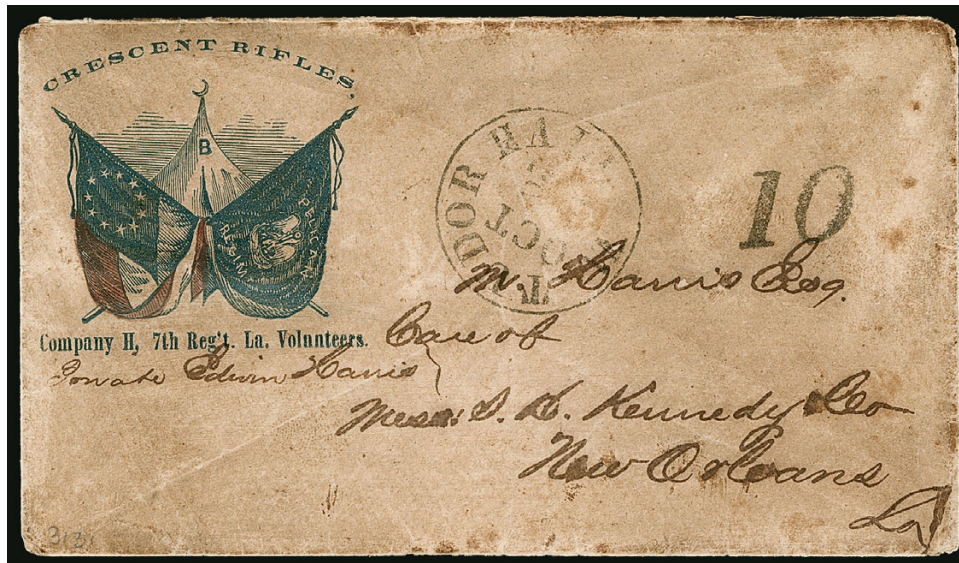 CRESCENT RIFLES,
B
PELICAN
REGIM
Company H, 7th Reg't. La. Volunteers.
Edwin Harris
TUDOR HALL
OCT
10
M. Harris Esq.
Care of
Mess: S. H. Kennedy & Co
New Orleans
La
313